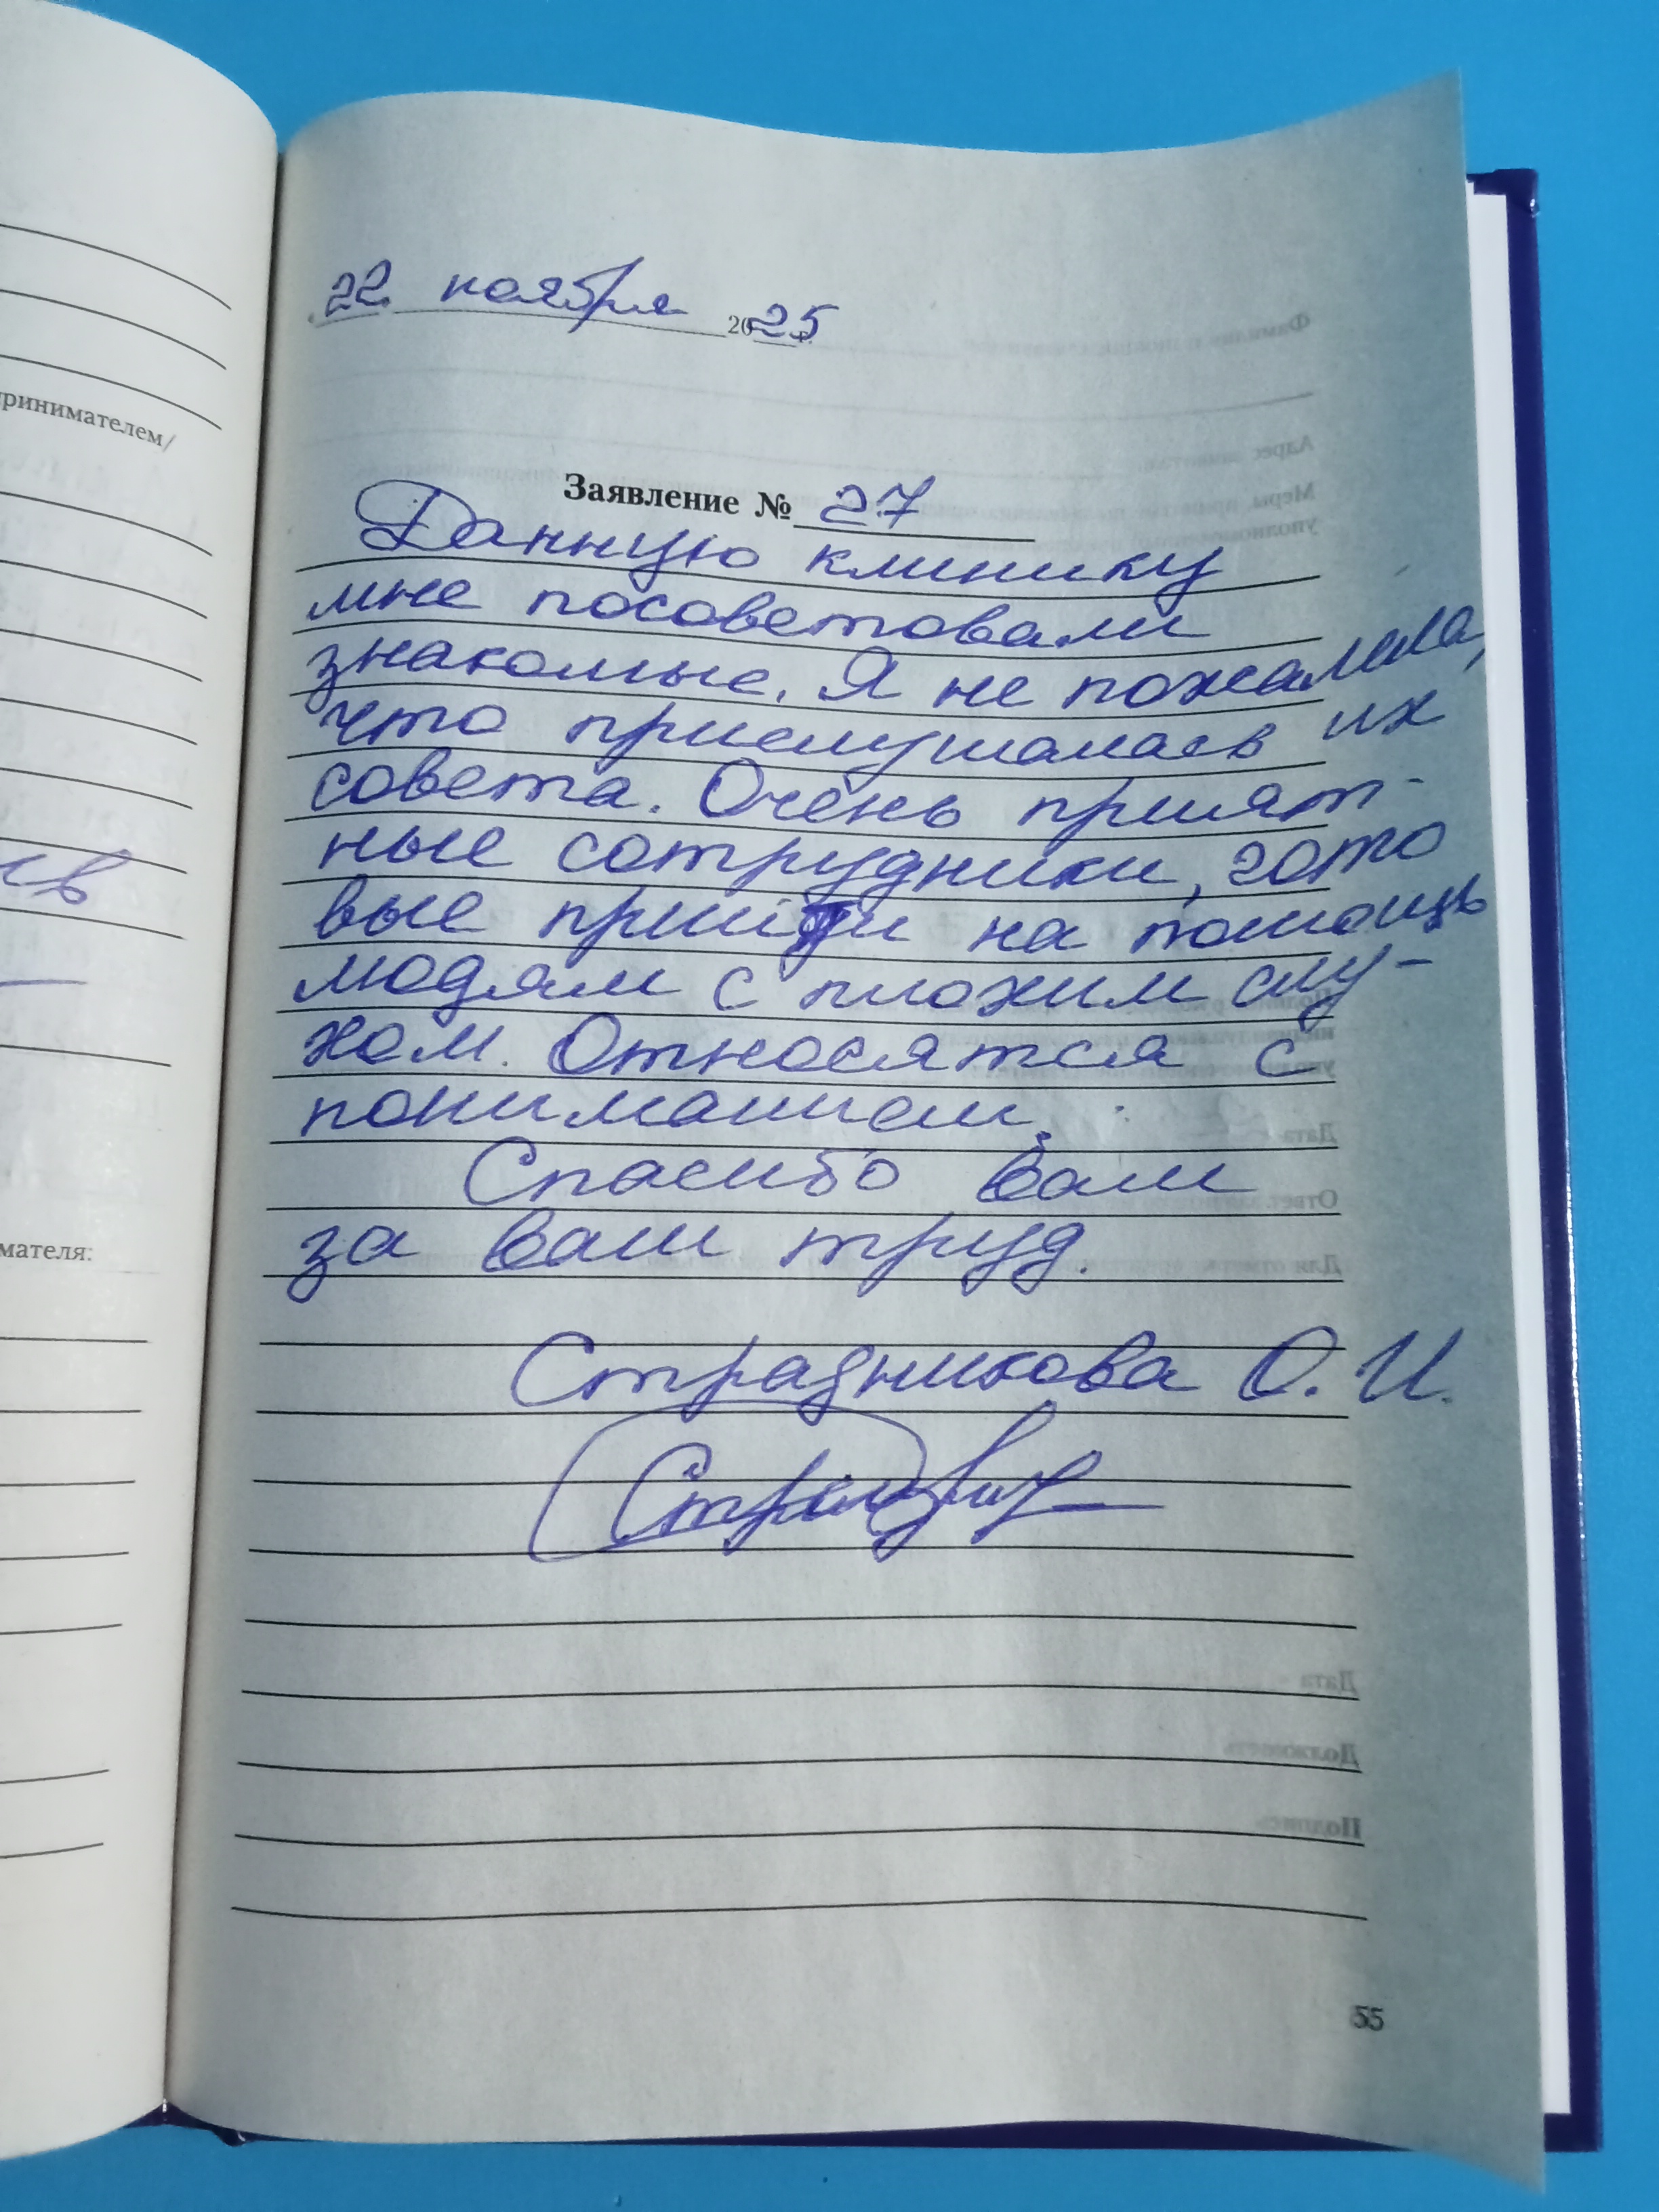 принимателем/
мателя:
22 ноября 2025 г.
Заявление № 27
Данную клинику
мне посоветовали
знакомые. Я не пожалела,
что прислушалась их
совета. Очень прият-
ные сотрудники, гото
вые прийти на помощь
людям с плохим слу-
хом. Относятся с
пониманием.
Спасибо вам
за ваш труд.
Страдникова О. И.
55